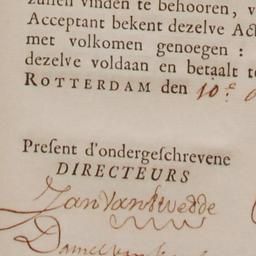 zullen vinden te behooren, v
Acceptant bekent dezelve Act
met volkomen genoegen :
dezelve voldaan en betaalt te
ROTTERDAM den 10.e
Preſent d'ondergeſchrevene
DIRECTEURS
Jan van